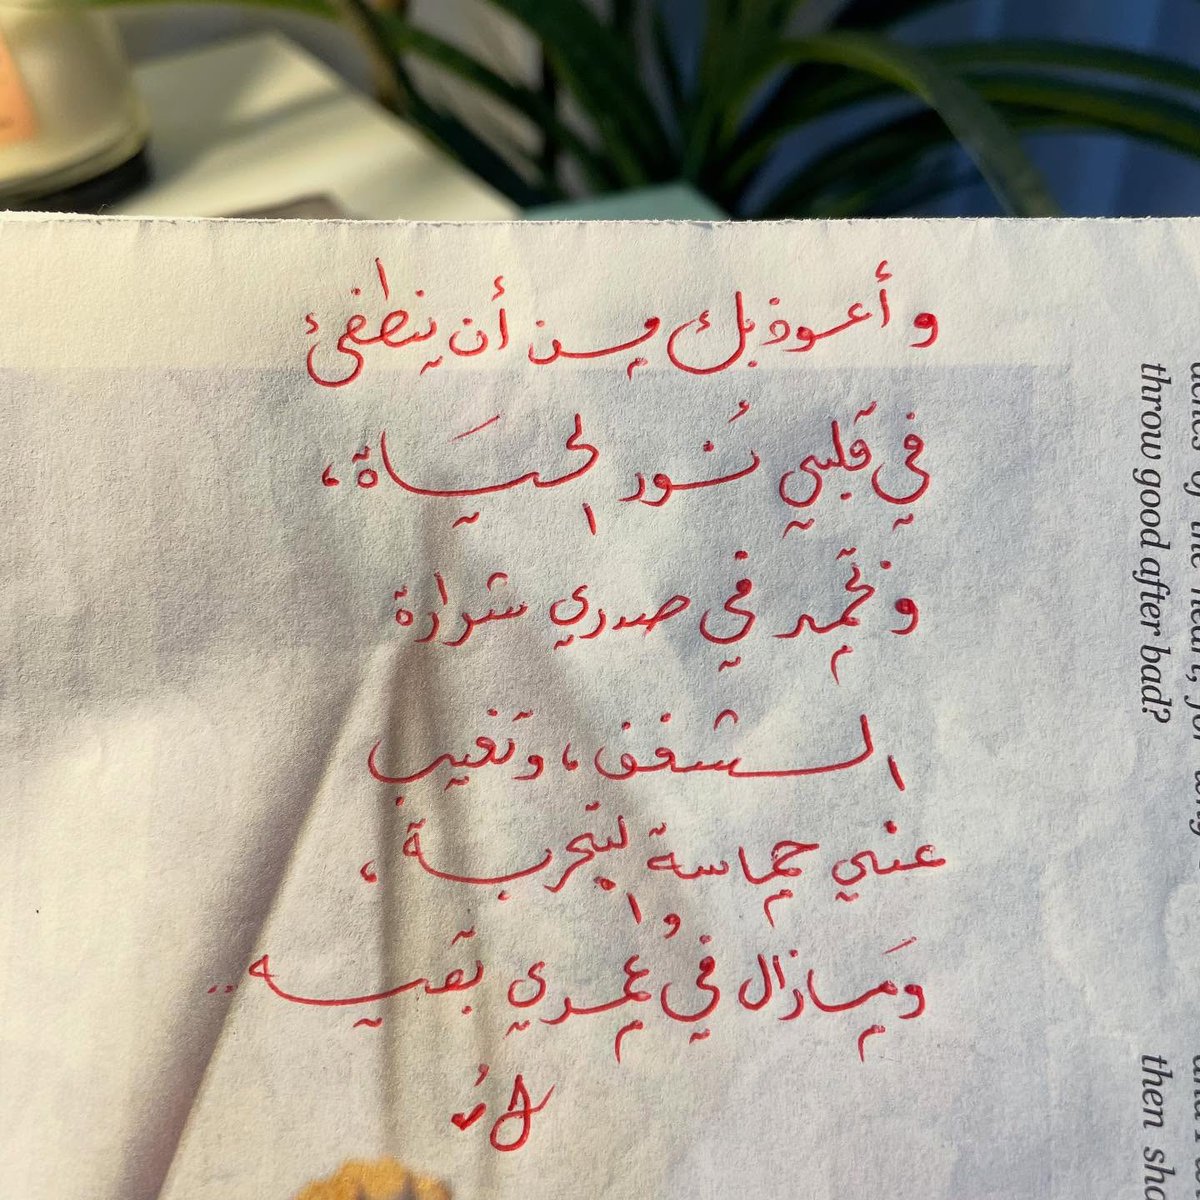 وأعوذ بك من أن ينطفئ
في قلبي نُور الحيَاة،
وتخمد في صدري شرارة
الشغف، وتغيب
عني حماسة التجربة،
ومَازال في عُمري بقيه..
throw good after bad?